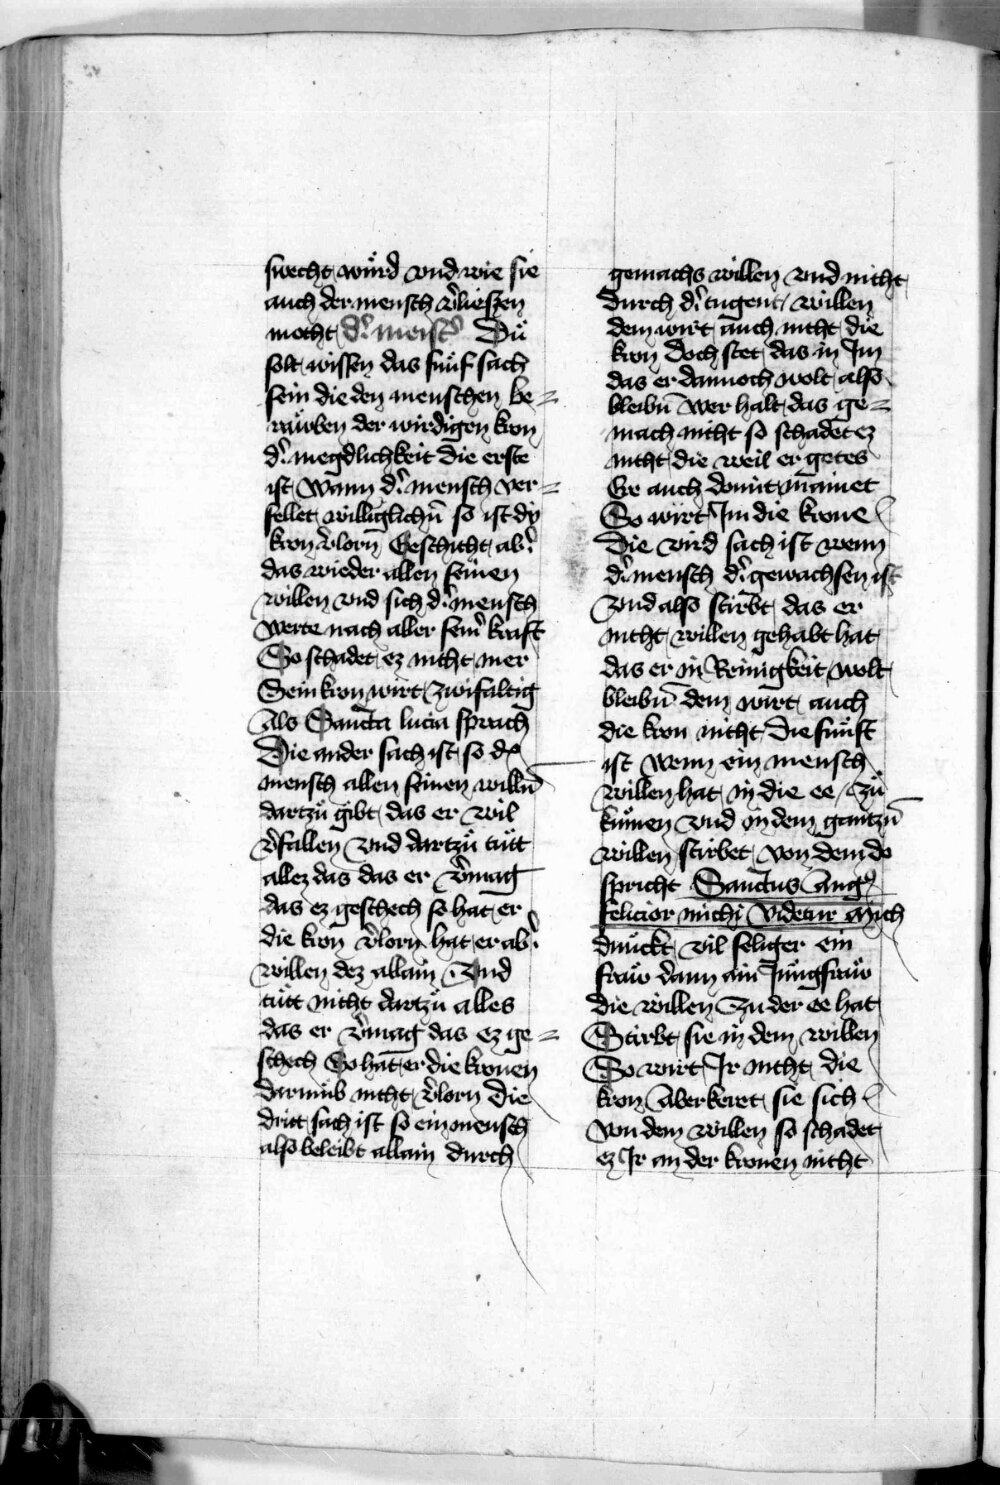 swecht würd vnd wie sie
auch der mensch v̾lieszen
mocht d̾ meist̾ Dü
solt wissen das fünf sach
sein die den menschen be=
rawben der wirdigen kron
d̾ megdlichkeit die erste
ist Wann d̾ mensch ver=
fellet williglichn̄ so ist dy
kron v̾lorn Geschicht ab̾
das wieder allen seinen
willen vnd sich d̾ mensch
werte nach aller sein̾ kraft
So schadet ez nicht mer
Sein kron wirt zwifaltig
Als Sancta lucia sprach
Die ander sach ist so d̾
mensch allen seinen willn̄
dartzü gibt das er wil
v̾fallen Vnd dartzü tütt
allez das das er v̾mag
das ez geschech so hat er
die kron v̾lorn hat er ab̾
willen dez allain Vnd
tütt nicht dartzü alles
das er v̾mag das ez ge=
schech So hat er die kronen
darumb nicht v̾lorn Die
dritt sach ist so ein mensch
also beleibt allain durch
gemachs willen vnd nicht
durch d̾ tugent willen
dem wirt auch nicht die
kron doch stet das in Im
das er dannoch wolt also
bleibn̄ wer halt das ge=
mach nicht so schadet ez
nicht die weil er gotes
Ere auch domit mainet
So wirt Im die krone
Die vird sach ist wenn
d̾ mensch d̾ gewachsen ist
Vnd also stirbt das er
nicht willen gehabt hat
das er in Reinigkeit wolt
bleibn̄ dem wirt auch
die kron nicht Die fünft
ist wenn ein mensch
willen hat in die ee zü
kumen vnd in dem gantzn̄
willen stirbet von dem do
spricht Sanctus Aug̾
felicior michi videtur Mich
dunckt vil seliger ein
fraw dann ain Jungfraw
die willen zu der ee hat
Stirbt sie in dem willen
So wirt Ir nicht die
kron Aber keret sie sich
von dem willen so schadet
ez Ir an der kronen nicht